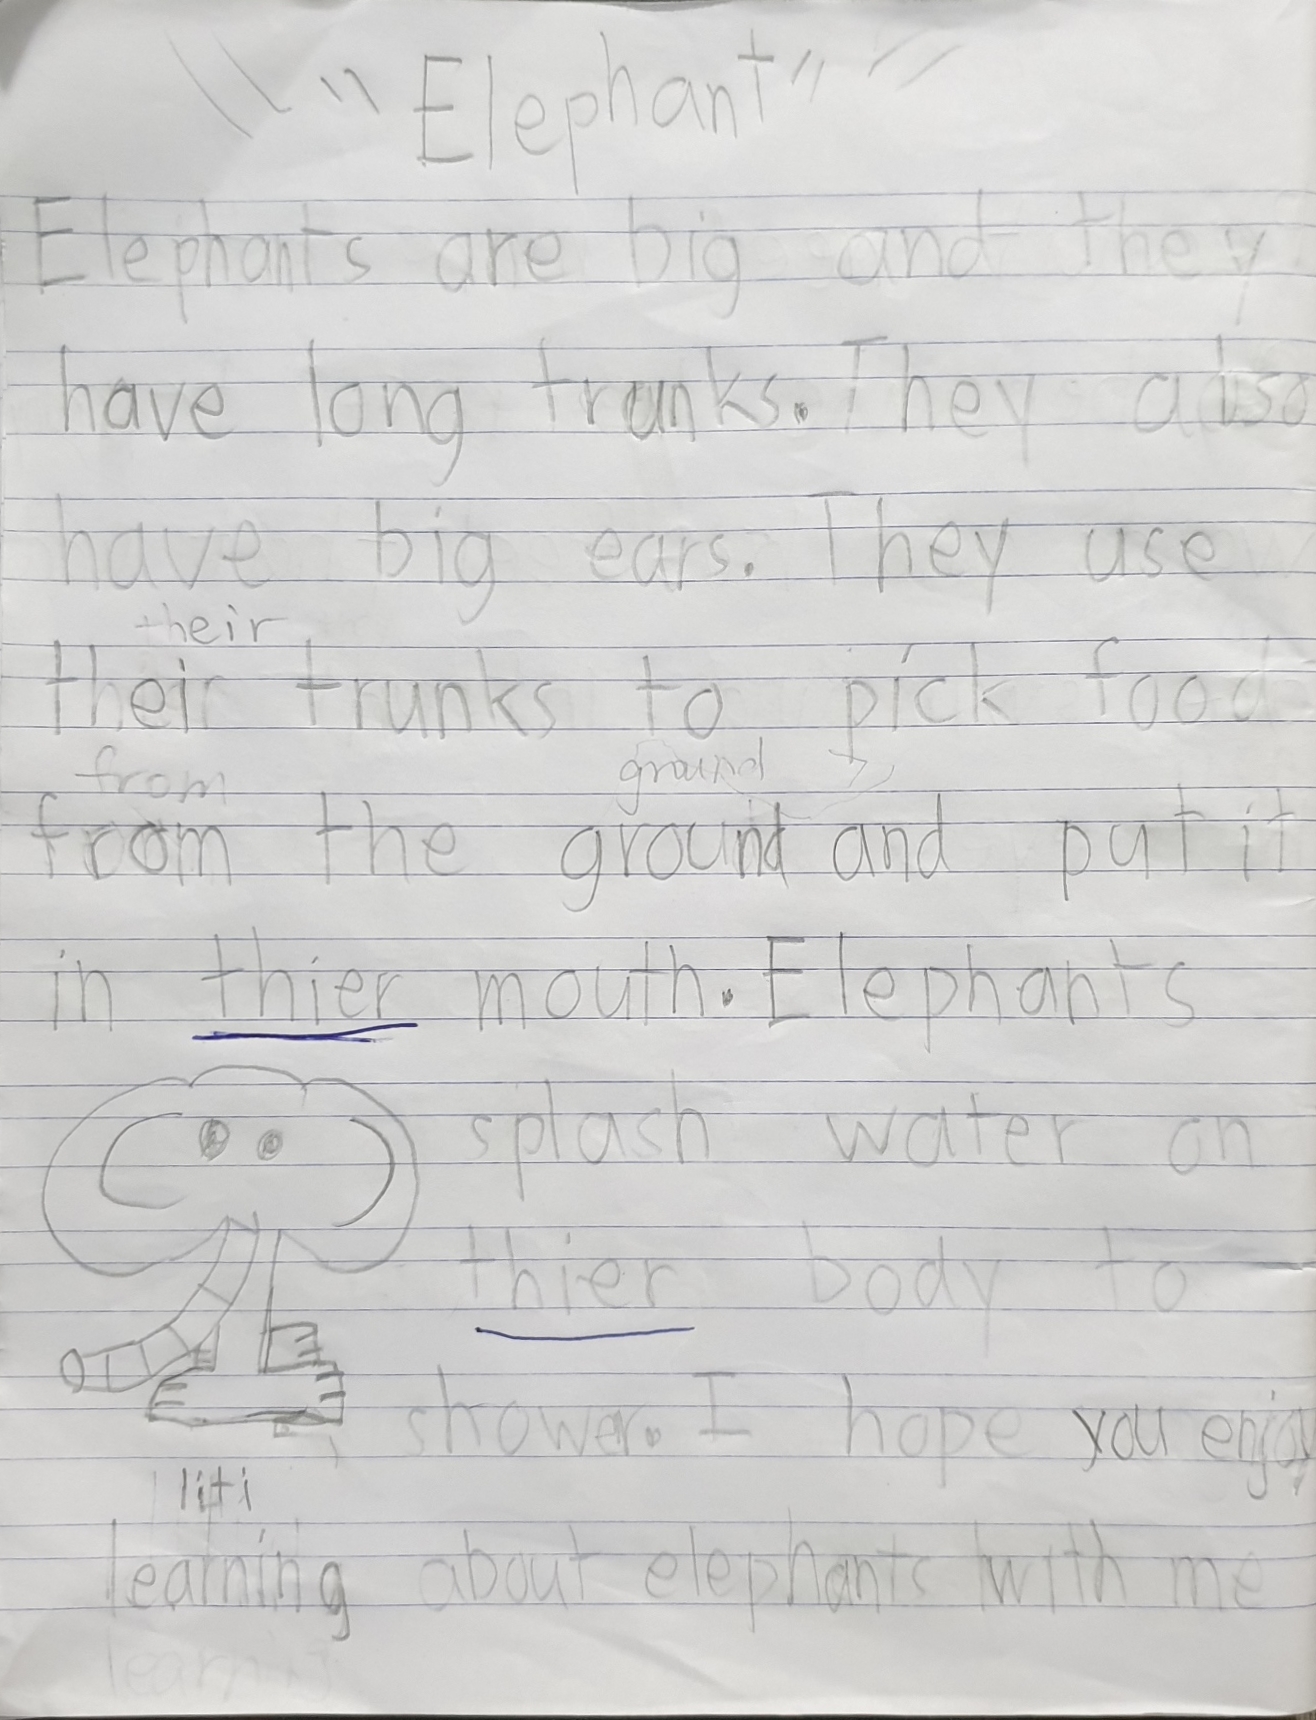 "Elephant"
Elephants are big and they
have long trunks. They also
have big ears. They use
their
their trunks to pick food
from ground
from the ground and put it
in thier mouth. Elephants
splash water on
thier body to
shower. I hope you enjoy
liti
learning about elephants with me